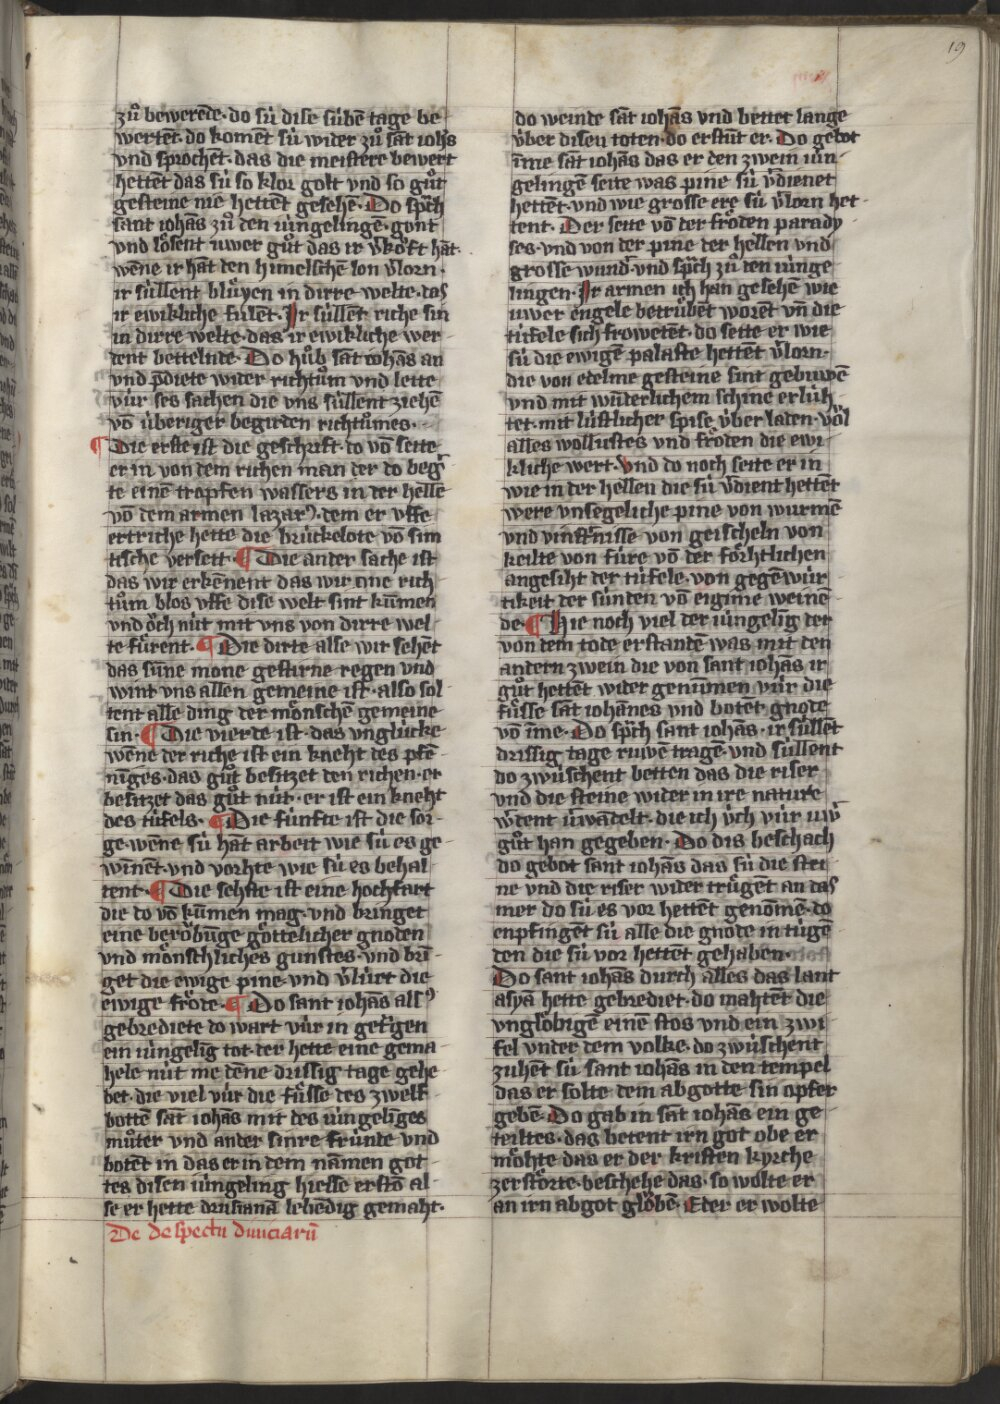 19
zů bewerēde· do sú dise súbē tage be
wertēt· do komēt sú wider zů sāt iohs
vnd sprochēt· das die meistere bewert
hettēt das sú so klor golt vnd so gůt
gesteine nie hettēt gesehē· Do sp̄ch
sant iohās zů den iúngelingē· gont
vnd lôsent uwer gůt das ir v̄kôft hāt·
wēne ir hāt den himelschē lon v̄lorn·
ir súllent blůyen in dirre welte· das
ir ewikliche fulēt· Ir súllēt riche sin
in dirre welte· das ir ewikliche wer
dent bettelnde· Do hůb sāt iohās an
vnd p̄diete wider richtům vnd leite
vúr ses sachen die vns súllent ziehē
vō úberiger begirden richtůmes·
Die erste ist die geschrift· do vō seite
er in von dem richen man der do beḡ
te einē tropfen wassers in der helle
vō dem armen lazar⁹· dem er vffe
ertriche hette die brúckelote vō sim
tische verseit· Die ander sache ist
das wir erkēnent das wir āne rich
tům blos vffe dise welt sint kūmen
vnd ôch nút mit vns von dirre wel
te fůrent· Die dirte alle wir sehēt
das sūne mone gestirne regen vnd
wint vns allen gemeine ist· also sol
tent alle ding der mônschē gemeine
sin· Die vierde ist· das vnglúcke
wēne der riche ist ein kneht des pfē
nīges· das gůt besitzet den richen· er
besitzet das gůt nút· er ist ein kneht
des túfels· Die fúnfte ist die sor
ge· wēne sú hāt arbeit wie sú es ge
winēt· vnd vorhte wie sú es behal
tent· Die sehste ist eine hochfart
die do vō kūmen mag· vnd bringet
eine berôbūge gôttelicher gnoden
vnd mônschliches gunstes· vnd brī
get die ewige pine· vnd v̄lúrt die
ewige frôde· Do sant iohās als⁹
gebrediete do wart vúr in getrāgen
ein iúngelīg tot· der hette eine gema
hele nút me dēne drissig tage gehe
bet· die viel vúr die fůsse des zwelf
bottē sāt iohās mit des iúngelīges
můter vnd ander sinre frúnde vnd
botēt in das er in dem nāmen got
tes disen iúngeling hiesse erstō al
se er hette drusianā lebēdig gemaht·
De despectu diuiciarū
do weinde sāt iohās vnd bettet lange
v́ber disen toten· do erstūt er· Do gebot
īme sāt iohās das er den zwein iún
gelingē seite was pine sú v̄dienet
hettēt· vnd wie grosse ere sú v̄lorn het
tent· Der seite vō der frôden parady
ses· vnd von der pine der hellen vnd
grosse wund̄· vnd sp̄ch zů den iúnge
lingen· Ir armen ich han gesehē wie
uwer engele betrůbēt worēt vn̄ die
túfele sich frowetēt· do seite er wie
sú die ewigē palaste hettēt v̄lorn·
die von edelme gesteine sint gebuwē
vnd mit wūderlichem schine erlúh
tet· mit lústlicher spise v́ber laden· vôl
alles wollustes vnd frôden die ewi
kliche wert· Vnd do noch seite er in
wie in der hellen die sú v̄dient hettēt
were vnsegeliche pine von wurmē
vnd vinstn̄isse von geischeln von
keilte von fúre vō der fôrhtlichen
angesiht der túfele· von gegēwúr
tikeit der súnden vō eigime weinē
de· Hie noch viel der iúngelīg der
von dem tode erstandē was mit den
andern zwein die von sant iohās ir
gůt hettēt wider genūmen vúr die
fůsse sāt iohānes vnd botēt gnode
vō īme· Do sp̄ch sant iohās· ir súllēt
drissig tage ruwē tragē· vnd súllent
do zwúschent betten das die riser
vnd die steine wider in ire nature
w̄dent v̄wādelt· die ich v́ch vúr uw̄
gůt han gegeben· Do dis beschach
do gebot sant iohās das sú die stei
ne vnd die riser wider trůgēt an das
mer do sú es vor hettēt genōmē· do
enpfingēt sú alle die gnode in túgē
den die sú vor hettēt gehaben·
Do sant iohās durch alles das lant
asyā hette gebrediet· do mahtēt die
vnglôbigē einē stos vnd ein zwi
fel vnder dem volke· do zwúschent
zuhēt sú sant iohās in den tempel
das er solte dem abgotte sin opfer
gebē· Do gab in sāt iohās ein ge
teiltes· das betent irn got obe er
môhte das er der kristen kyrche
zerstôrte· beschehe das· so wolte er
an irn abgot glôbē· Eder er wolte